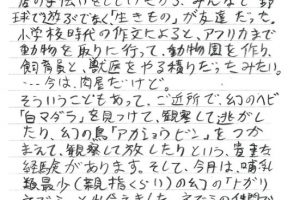 店の手伝いをしていたから、みんなと野
球で遊ぶでなく「生きもの」が友達だった。
小学校時代の作文によると、アフリカまで
動物を取りに行って、動物園を作り、
飼育員と、獣医をやる積りだったみたい。
…今は、肉屋だけど。
そういうこともあって、ご近所で、幻のヘビ
「白マダラ」を見つけて、観察して逃がし
たり、幻の鳥「アカショウビン」をつか
まえて、観察して放したりという、貴重な
経験があります。そして、今月は、哺乳
類最少(親指くらい)の幻の「トガリ